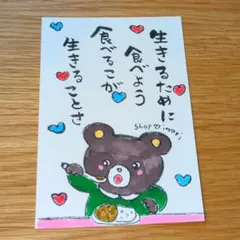 生きるために
食べよう
食べることが
生きることさ